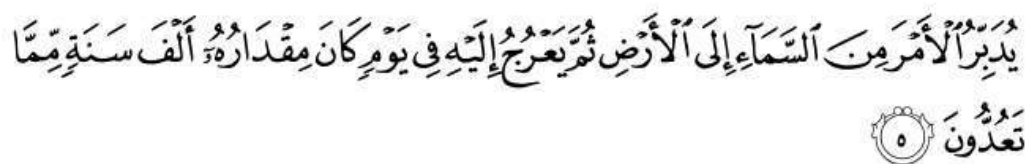 يُدَبِّرُ ٱلْأَمْرَ مِنَ ٱلسَّمَآءِ إِلَى ٱلْأَرْضِ ثُمَّ يَعْرُجُ إِلَيْهِ فِى يَوْمٍ كَانَ مِقْدَارُهُۥٓ أَلْفَ سَنَةٍ مِّمَّا
تَعُدُّونَ ٥